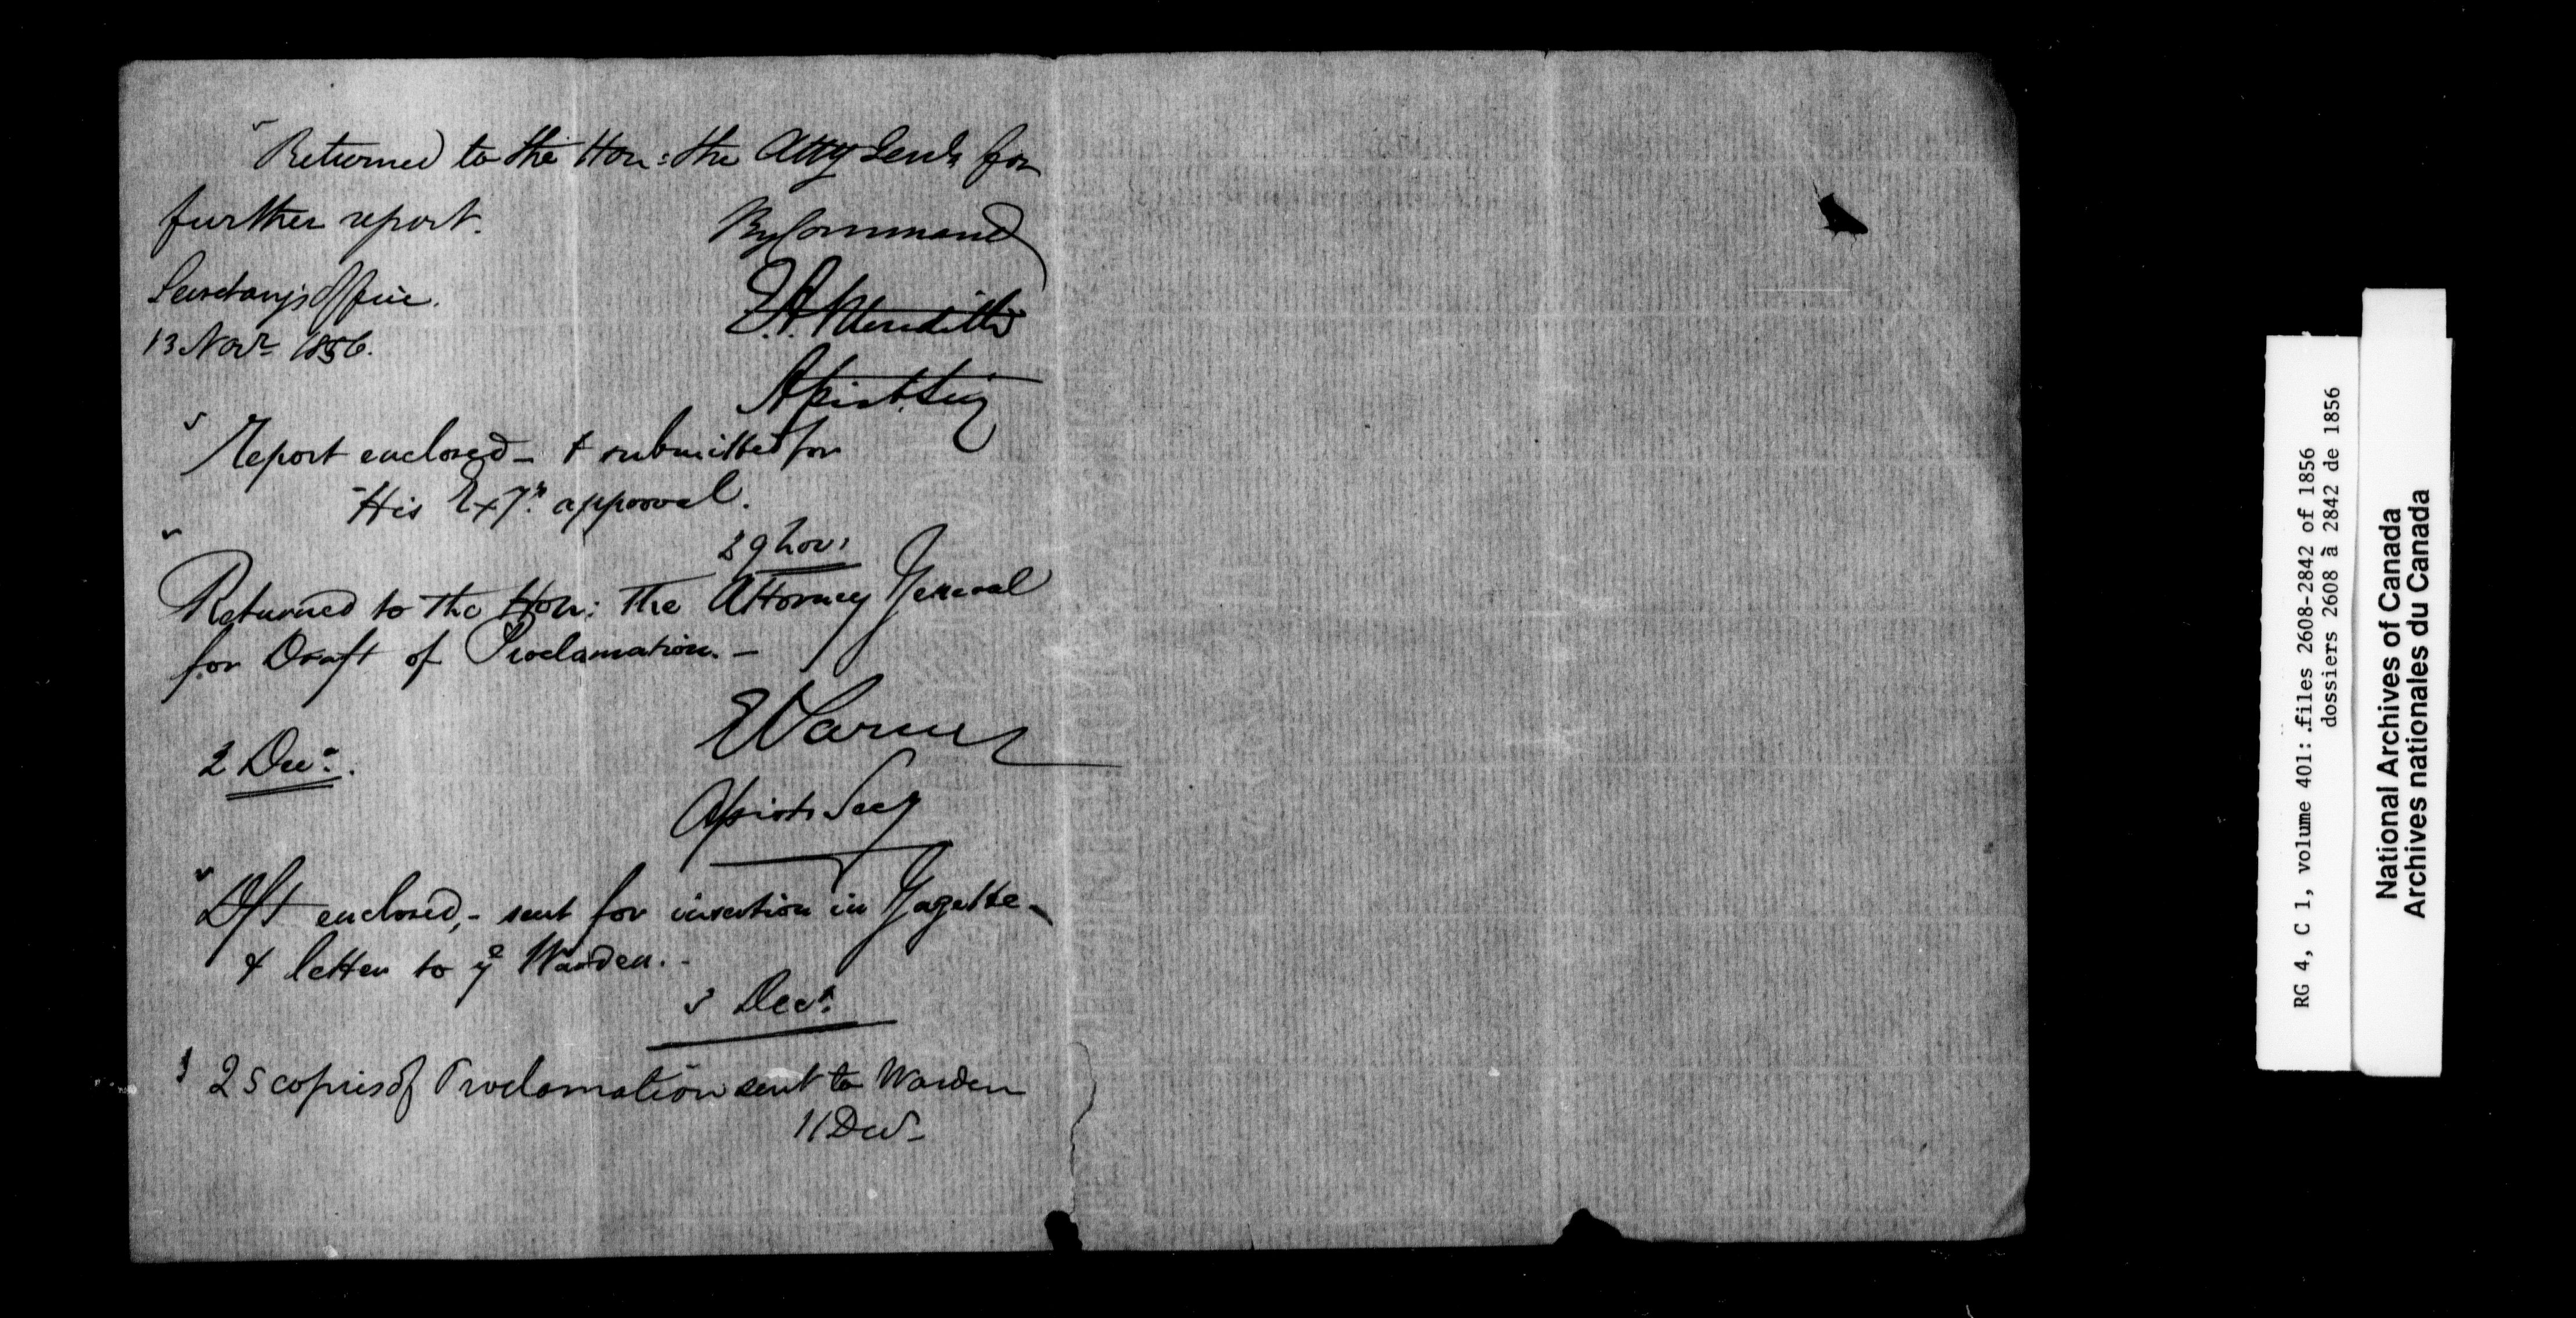 Returned to the Hon: the Atty Genl for
further report.
By Command
Secretary's Office.
E. A. Meredith
13 Novr 1856.
Assist. Secy
Report enclosed - & submitted for
His Exy's approval.
29 Nov:
Returned to the Hon: the Attorney General
for Draft of Proclamation. -
2 Decr.
Assist Secy
Dft enclosed, - sent for insertion in Gazette -
& letter to ye Warden. -
3 Decr.
25 copies of Proclamation sent to Warden
11 Decr
RG 4, C 1, volume 401: files 2608-2842 of 1856
dossiers 2608 à 2842 de 1856
National Archives of Canada
Archives nationales du Canada